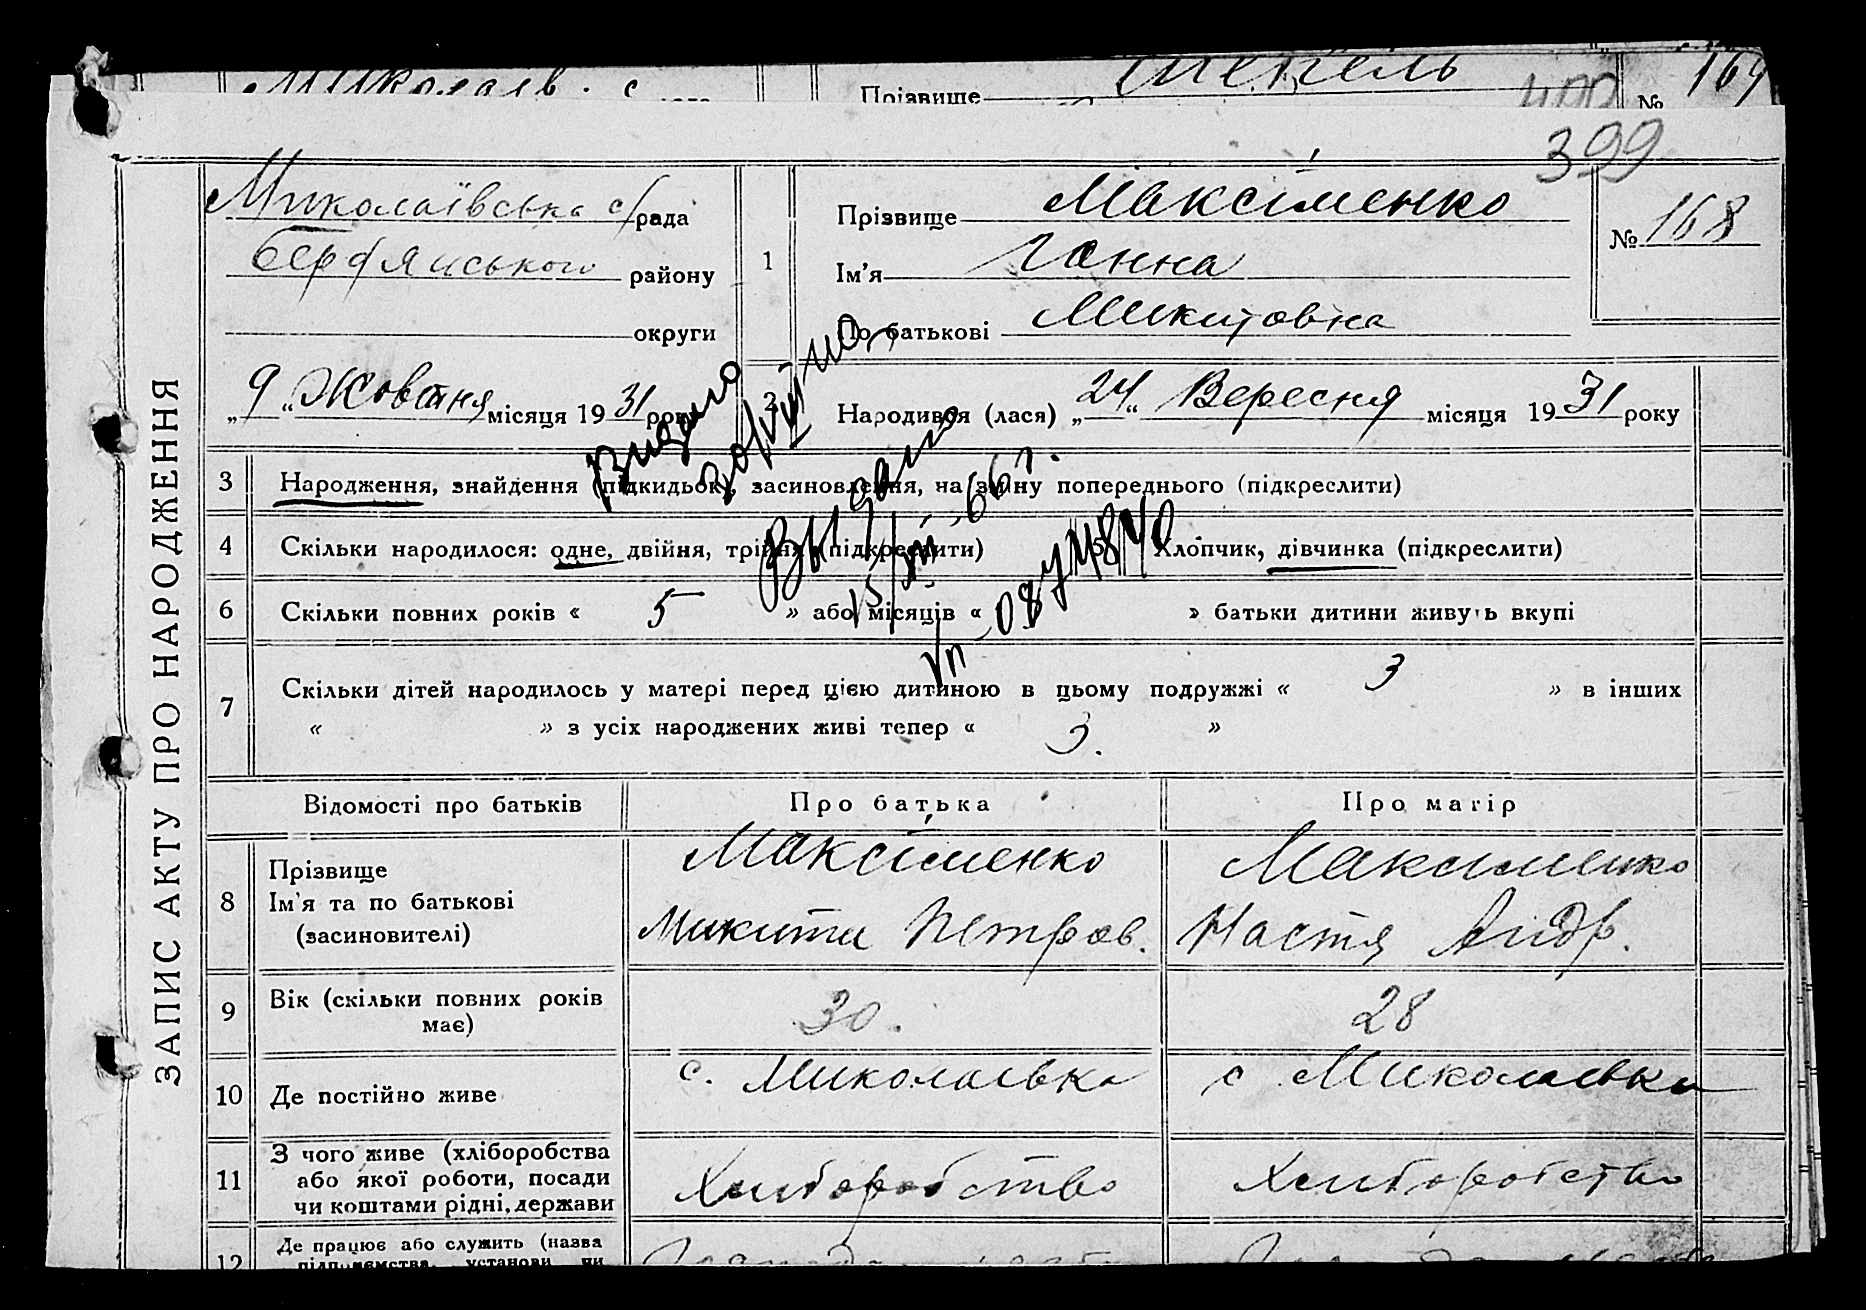 Миколаїв. с
Прізвище
400
№ 169
399
ЗАПИС АКТУ ПРО НАРОДЖЕННЯ
Миколаївська с/рада
Бердянського району
округи
1
Прізвище Максіменко
Ім'я Ганна
По батькові Микитовна
№ 168
„9“ Жовтня місяця 1931 року
2
Народився (лася) „24“ Вересня місяця 1931 року
Видано
Выдано
15/VII 66 г.
3 Народження, знайдення (підкидьок), засиновлення, на зміну попереднього (підкреслити)
4 Скільки народилося: одне, двійня, трійня (підкреслити) 5 Хлопчик, дівчинка (підкреслити)
6 Скільки повних років « 5 » або місяців « » батьки дитини живуть вкупі
7 Скільки дітей народилось у матері перед цією дитиною в цьому подружжі « 3 » в інших
« » з усіх народжених живі тепер « 3. »
Відомості про батьків Про батька Про матір
8 Прізвище
Ім'я та по батькові
(засиновителі)
Максіменко
Микита Петров.
Максименко
Настя Андр.
9 Вік (скільки повних років
має)
30.
28
10 Де постійно живе
с. Миколаївка
с Миколаївка
11 З чого живе (хліборобства
або якої роботи, посади
чи коштами рідні, держави
Хлиборобство
Хлиборобство
12 Де працює або служить (назва
підприємства, установи чи